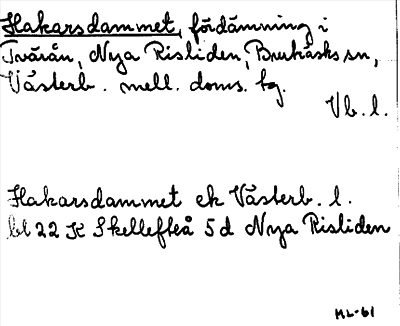 Hakarsdammet, fördämning i
Tvärån, Nya Risliden, Burträsks sn,
Västerb. mell. doms. tg.
Vb. l.
Hakarsdammet ek Västerb. l.
bl 22 K Skellefteå 5d Nya Risliden
ML-61